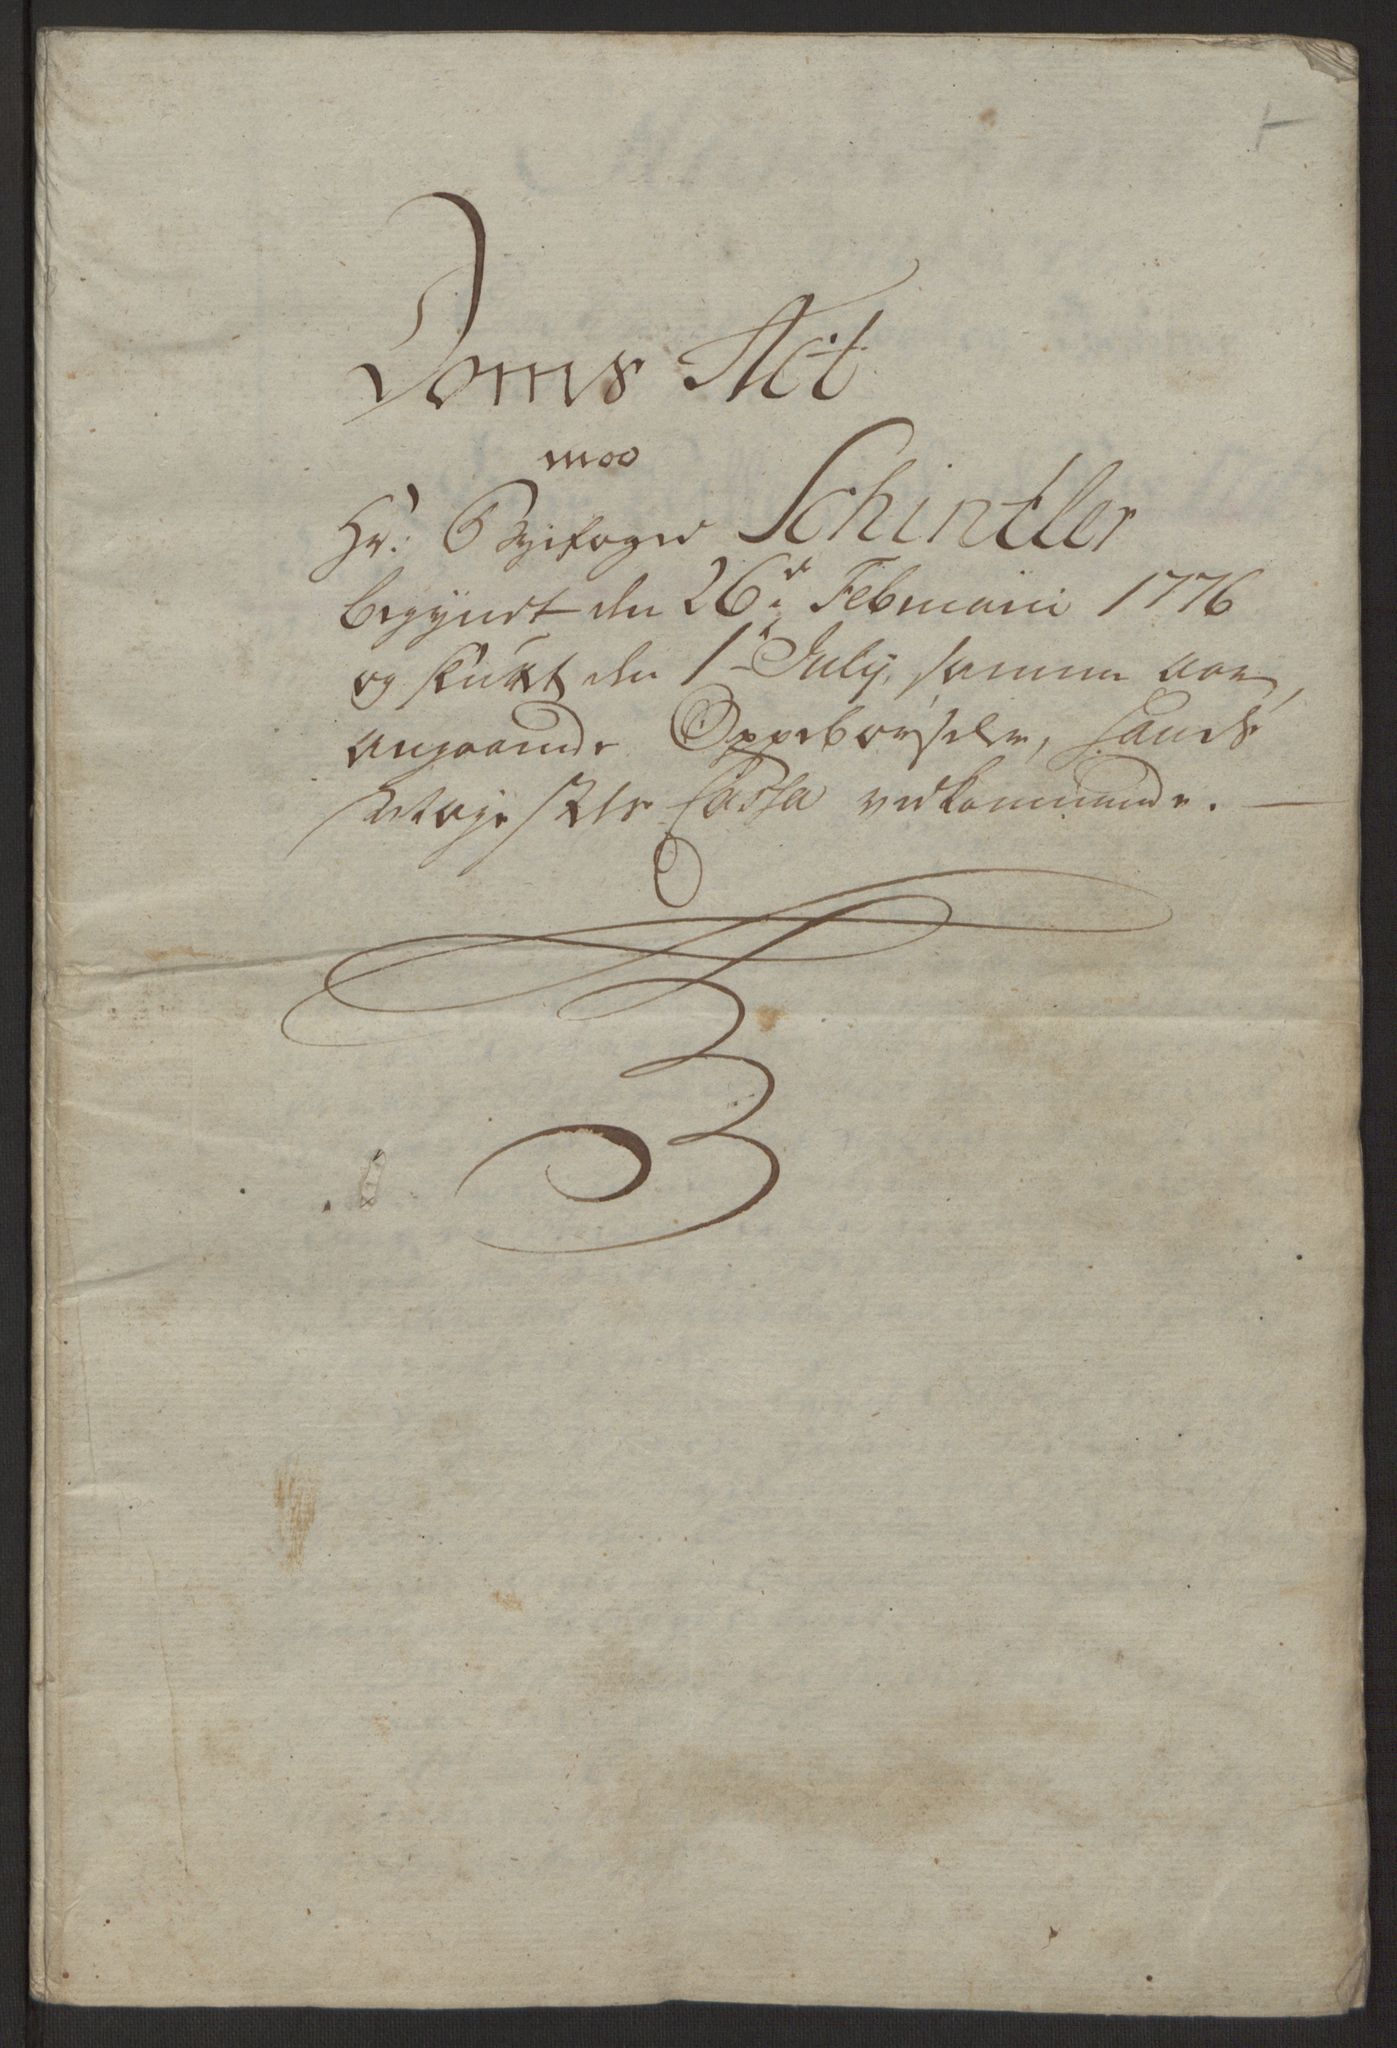 Doms Act
mod
Hr: Byefoged Schintler
begyndt den 26de Februarii 1776
og sluttet den 1te July samme aar,
angaaende Oppebørseler, hans
Cassa vedkommende. —